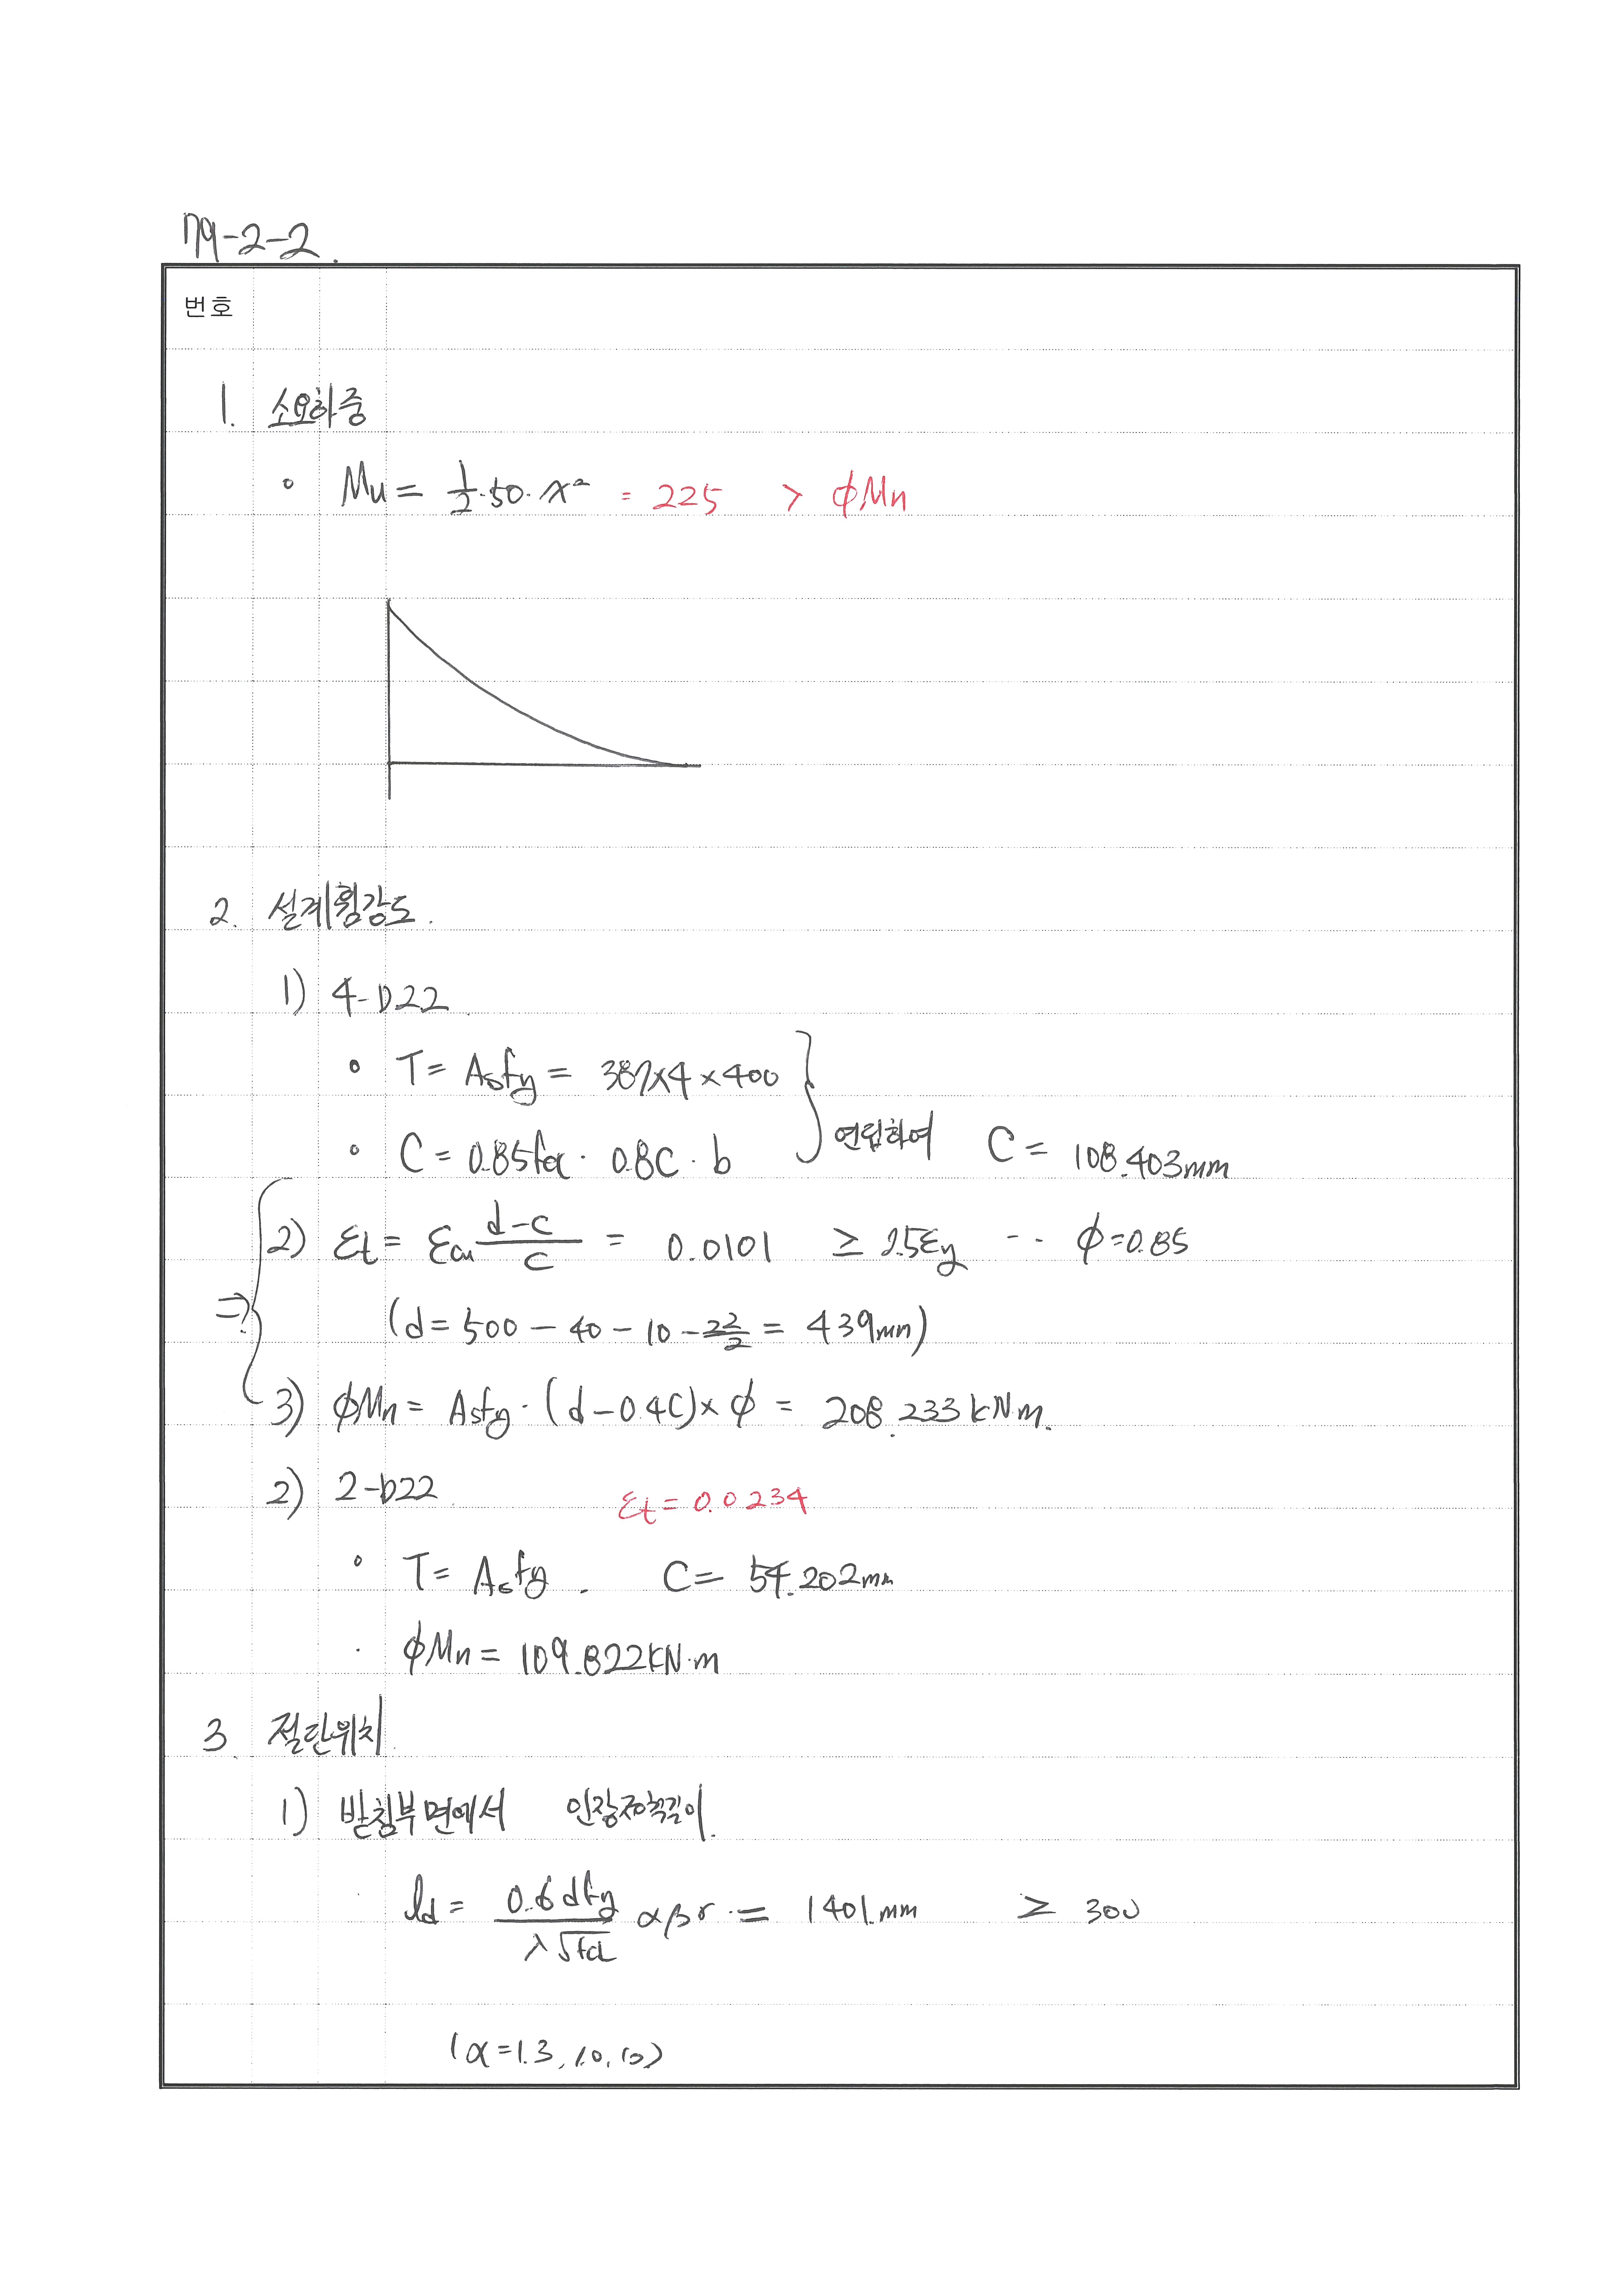 79-2-2.
번호
1. 소요하중
∘ Mu = 1/2·50·x² = 225 > ϕMn
2. 설계휨강도.
1) 4-D22
∘ T = Asfy = 387×4×400
∘ C = 0.85fck · 0.8C · b
연립하여 C = 108.403mm
2) εt = εcu (d-c)/c = 0.0101 ≥ 2.5εy ‥ ϕ=0.85
⇒ (d = 500 - 40 - 10 - 22/2 = 439mm)
3) ϕMn = Asfy·(d-0.4C)×ϕ = 208.233kN·m.
2) 2-D22 εt = 0.0234
∘ T = Asfy. C = 54.202mm
· ϕMn = 109.822kN·m
3. 절단위치.
1) 받침부면에서 인장정착길이.
ld = 0.6dfy/λ√fck αβγ = 1401.mm ≥ 300
(α=1.3, 1.0, 1.0)